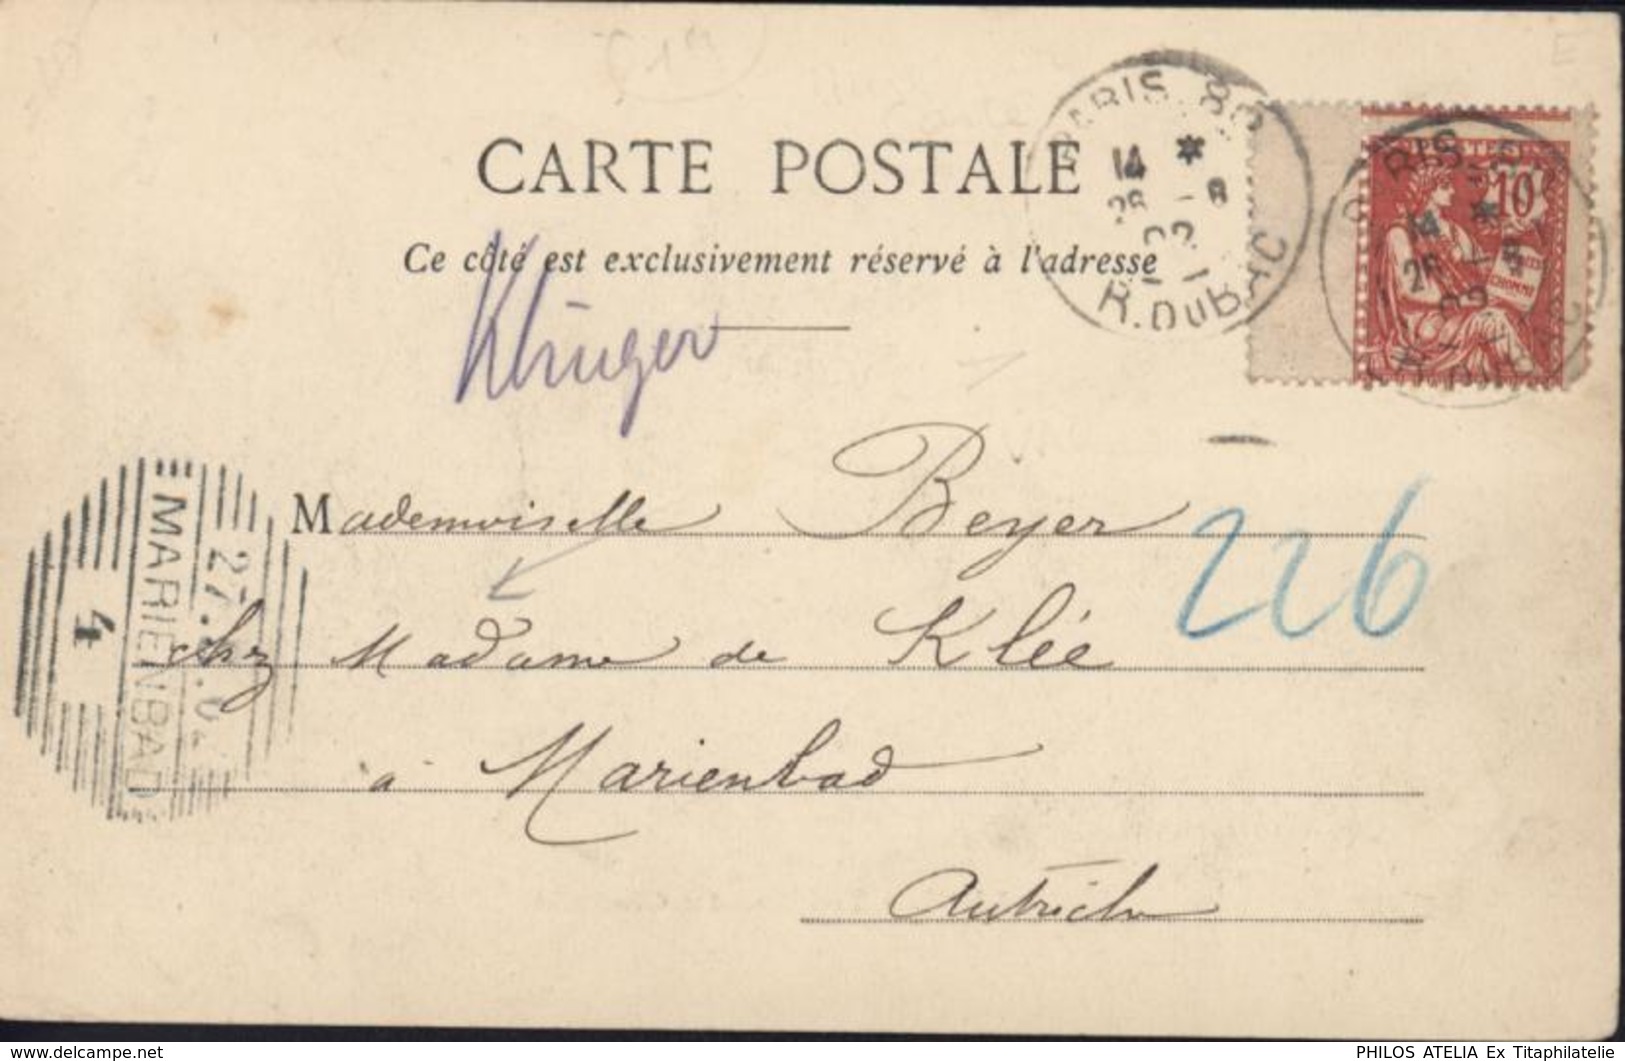 CARTE POSTALE
Ce côté est exclusivement réservé à l'adresse
PARIS 80
14 *
26 - 8
02
R. DU BAC
10
14 *
26 - 8
02
Klüger
Mademoiselle Beyer
226
chez Madame de Klée
à Marienbad
Autriche
MARIENBAD
27.
4
PHILOS ATELIA Ex Titaphilatelie
delcampe.net